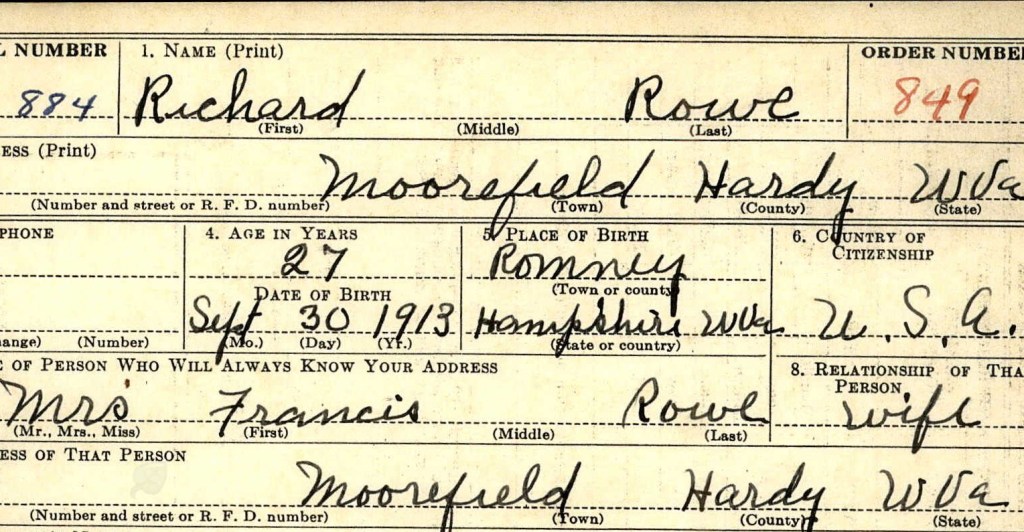 L NUMBER 1. NAME (Print) ORDER NUMBE
884 Richard Rowe 849
(First) (Middle) (Last)
ESS (Print)
Moorefield Hardy WVa
(Number and street or R. F. D. number) (Town) (County) (State)
PHONE 4. AGE IN YEARS 5. PLACE OF BIRTH 6. COUNTRY OF
CITIZENSHIP
27 Romney
DATE OF BIRTH (Town or county)
Sept 30 1913 Hampshire WVa U. S. A.
ange) (Number) (Mo.) (Day) (Yr.) (State or country)
E OF PERSON WHO WILL ALWAYS KNOW YOUR ADDRESS 8. RELATIONSHIP OF THA
PERSON
Mrs Francis Rowe wife
(Mr., Mrs., Miss) (First) (Middle) (Last)
ESS OF THAT PERSON
Moorefield Hardy WVa
(Number and street or R. F. D. number) (Town) (County) (State)